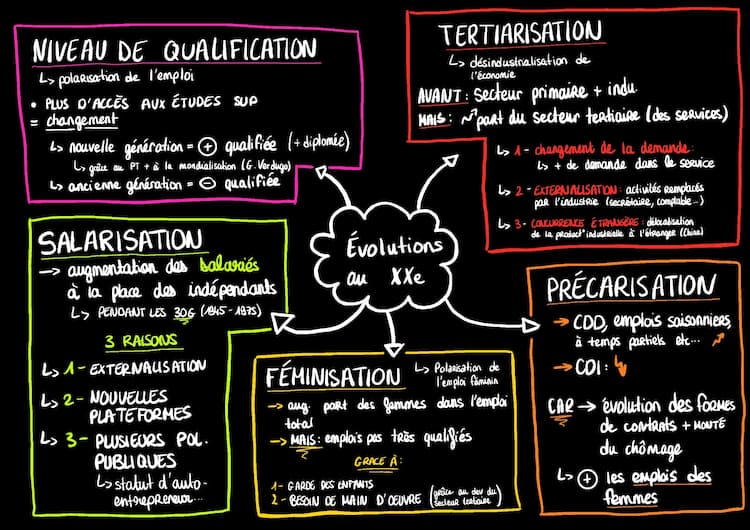 NIVEAU DE QUALIFICATION
↳ polarisation de l'emploi
• PLUS D'ACCÈS AUX ÉTUDES SUP
= changement
↳ nouvelle génération = + qualifiée (+ diplomée)
↳ grâce au PT + à la mondialisation (G. Verdugo)
↳ ancienne génération = - qualifiée
TERTIARISATION
↳ désindustrialisation de
l'économie
AVANT : secteur primaire + indu.
MAIS : ↗ part du secteur tertiaire (des services)
↳ 1 - changement de la demande :
↳ + de demande dans le service
↳ 2 - EXTERNALISATION : activités remplacés
par l'industrie (secrétaire, comptable...)
↳ 3 - CONCURRENCE ÉTRANGÈRE : délocalisation
de la product° industrielle à l'étranger (Chine)
Évolutions
au XXe
SALARISATION
→ augmentation des salariés
à la place des indépendants
↳ PENDANT LES 30G (1945-1975)
3 RAISONS
↳ 1 - EXTERNALISATION
↳ 2 - NOUVELLES
PLATEFORMES
↳ 3 - PLUSIEURS POL.
PUBLIQUES
↳ statut d'auto-
entrepreneur...
FÉMINISATION
↳ Polarisation de
l'emploi féminin
→ aug. part des femmes dans l'emploi
total
→ MAIS : emplois pas très qualifiés
GRACE À :
1 - GARDE DES ENFANTS
2 - BESOIN DE MAIN D'OEUVRE (grâce au dev du
secteur tertiaire)
PRÉCARISATION
→ CDD, emplois saisonniers,
à temps partiels etc... ↗
→ CDI : ↘
CAR → évolution des formes
de contrats + MONTÉ
du chômage
↳ + les emplois des
femmes